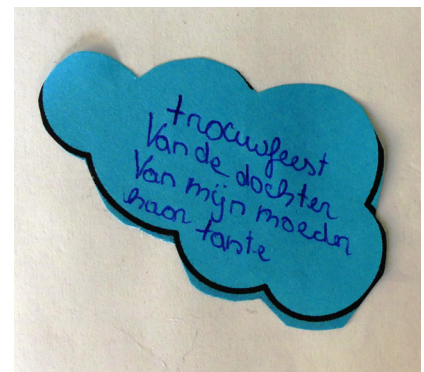 trouwfeest
Van de dochter
Van mijn moeder
haar tante